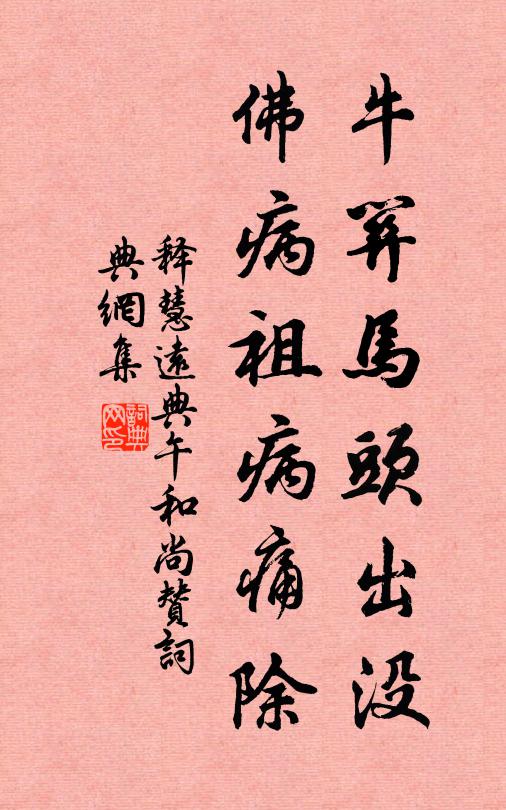 牛羿馬頭出没
佛病祖病痛除
释慧遠典午和尚贊詞
典網集
詞典網印